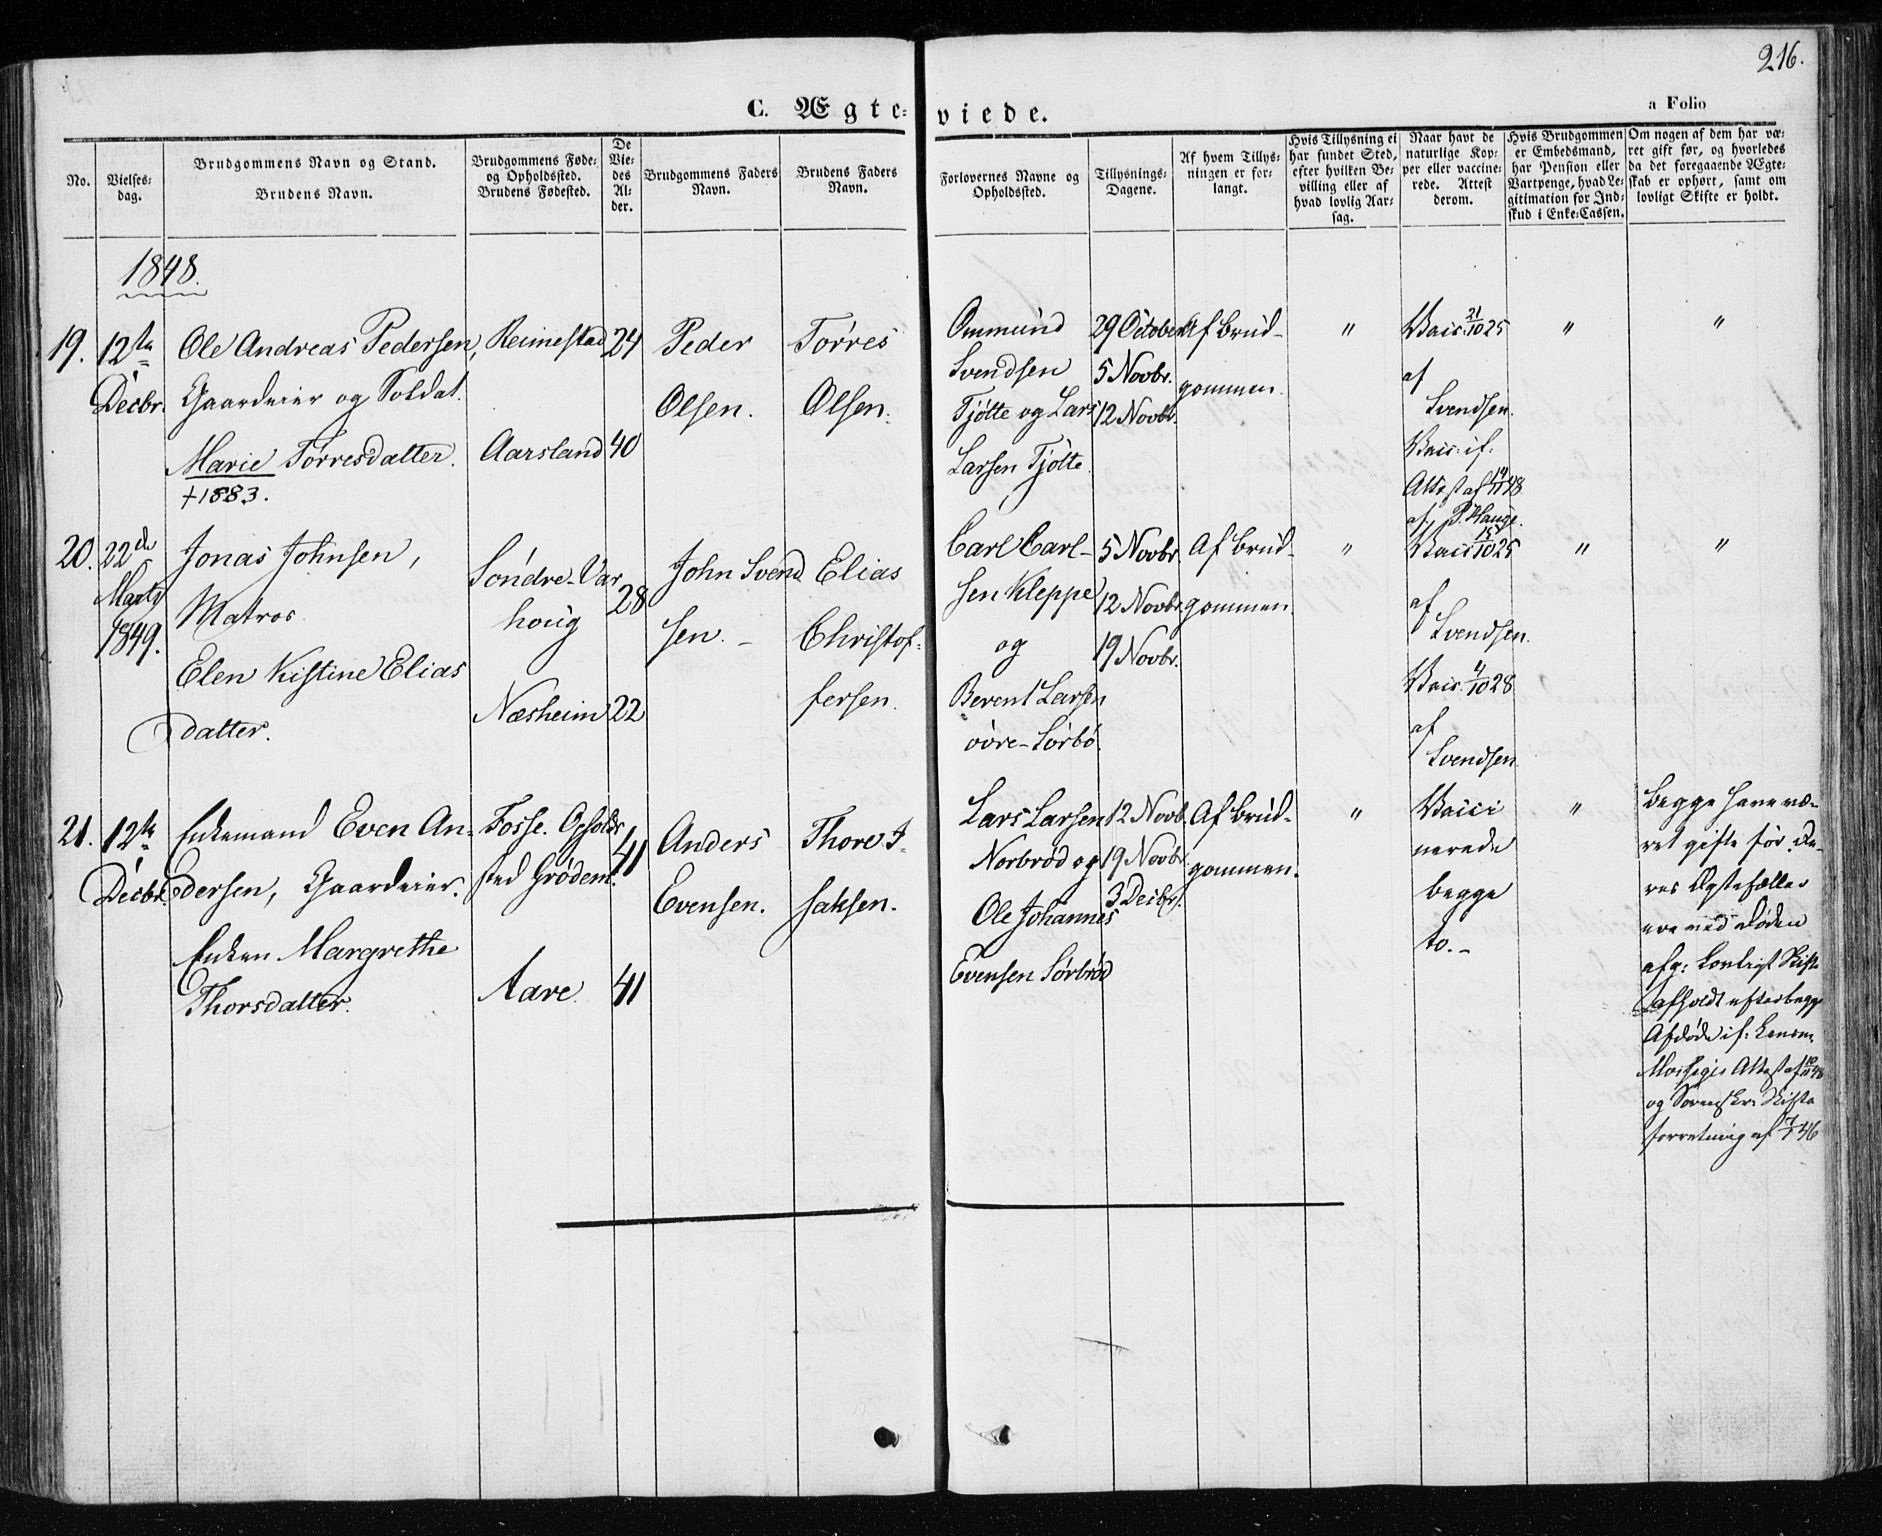 216.
C. Ægte-
viede.
a Folio
No.
Vielses-
dag.
Brudgommens Navn og Stand.
Brudens Navn.
Brudgommens Føde-
og Opholdssted.
Brudens Fødested.
De
Vie-
des
Al-
der.
Brudgommens Faders
Navn.
Brudens Faders
Navn.
Forlovernes Navne og
Opholdssted.
Tillysnings-
Dagene.
Af hvem Tillys-
ningen er for-
langt.
Hvis Tillysning ei
har fundet Sted,
efter hvilken Be-
villing eller af
hvad lovlig Aar-
sag.
Naar havt de
naturlige Kop-
per eller vaccine-
rede. Attest
derom.
Hvis Brudgommen
er Embedsmand,
har Pension eller
Vartpenge, hvad Le-
gitimation for Ind-
skud i Enke-Cassen.
Om nogen af dem har væ-
ret gift før, og hvorledes
da det foregaaende Ægte-
skab er ophørt, samt om
lovligt Skifte er holdt.
1848.
19.
12te
Decbr.
Ole Andreas Pedersen,
Gaardeier og Soldat.
Marie Tørresdatter.
+1883.
Reimestad
Aarsland
24
40
Peder
Olsen.
Tørres
Olsen.
Ommund
Svendsen
Tjøtte og Lars
Larsen Tjøtte.
29 October
5 Novbr.
12 Novbr.
Af Brud-
gommen.
"
Vacc. 21/10 25
af
Svendsen.
Vacc: if:
Attest af 48
af P. Hauge.
"
"
20.
22de
Marts
1849.
Jonas Johnsen,
Matros.
Elen Kistine Elias
datter.
Søndre-Var
houg
Næsheim
28
22
John Svend
sen. –
Elias
Christof-
fersen.
Carl Carl-
sen Kleppe
og
Berent Larsen
øvre-Sørbø.
5 Novbr.
12 Novbr.
19 Novbr.
Af Brud-
gommen.
"
Vacc 15/10 25
af
Svendsen.
Vacc. 4/10 28
af
Svendsen.
"
"
21.
12te
Decbr.
Enkemand Even An-
dersen, Gaardeier.
Enken Margrethe
Thorsdatter.
Fosse. Opholds
sted Grødem.
Aare.
41
41
Anders
Evensen.
Thore I-
saksen.
Lars Larsen
Norbrød og
Ole Johannes
Evensen Sørbrød
12 Novb.
19 Novbr.
3 Decbr.
Af Brud-
gommen.
"
Vacci
nerede
begge
to. –
"
Begge have væ-
ret gifte før. De-
res Ægtefæller
ere ved Døden
afg: Lovligt Skifte
afholdt efter begge
Afdøde if:
Attest af 48
og Skifte
forretning af 7/7 46